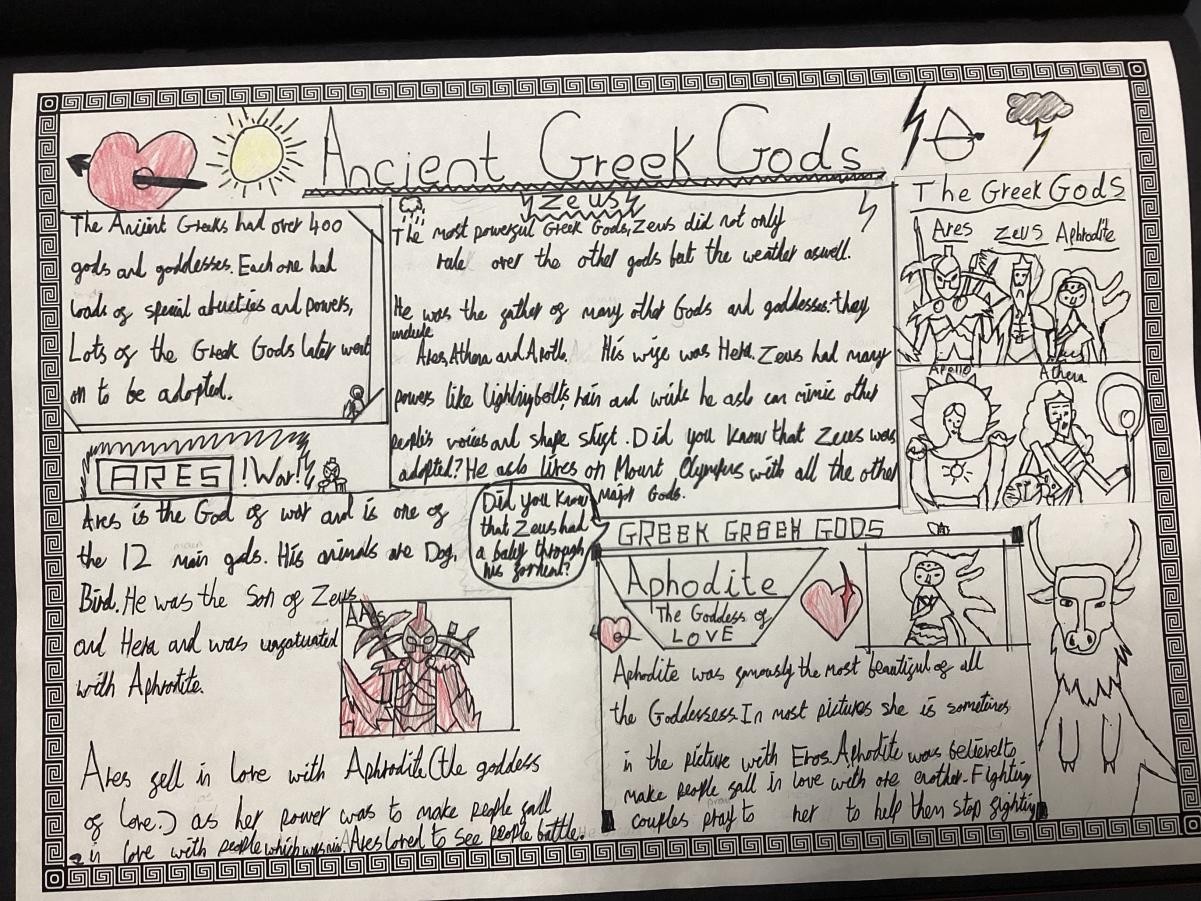 Ancient Greek Gods
The Ancient Greeks had over 400
gods and goddesses. Each one had
loads of special abucties and powers,
Lots of the Greek Gods later went
on to be adopted.
Zeus
The most powerful Greek Gods, Zeus did not only
rule over the other gods but the weather aswell.
He was the father of many other Gods and goddesses they
include
Ares, Athena and Apollo. His wife was Hera. Zeus had many
powers like lightning bolts, rain and winds he aslo can mimic other
people's voices and shape shift. Did you know that Zeus was
adopted? He aslo lives on Mount Olympus with all the other
Major Gods.
The Greek Gods
Ares Zeus Aphrodite
Apollo Athena
ARES !War!
Ares is the God of war and is one of
the 12 main gods. His animals are Dog,
Bird. He was the Son of Zeus
and Hera and was
with Aphrodite.
Ares
Ares fell in love with Aphrodite (the goddess
of love.) as her power was to make people fall
in love with people which was Ares loved to see people battle.
Did you know
that Zeus had
a baby through
his
GREEK GREEK GODS
Aphodite
The Goddess of
LOVE
Aphodite was famously the most beautiful of all
the Goddessess. In most pictures she is sometimes
in the picture with Eros. Aphodite was believe to
make people fall in love with one another. Fighting
couples pray to her to help them stop fighting